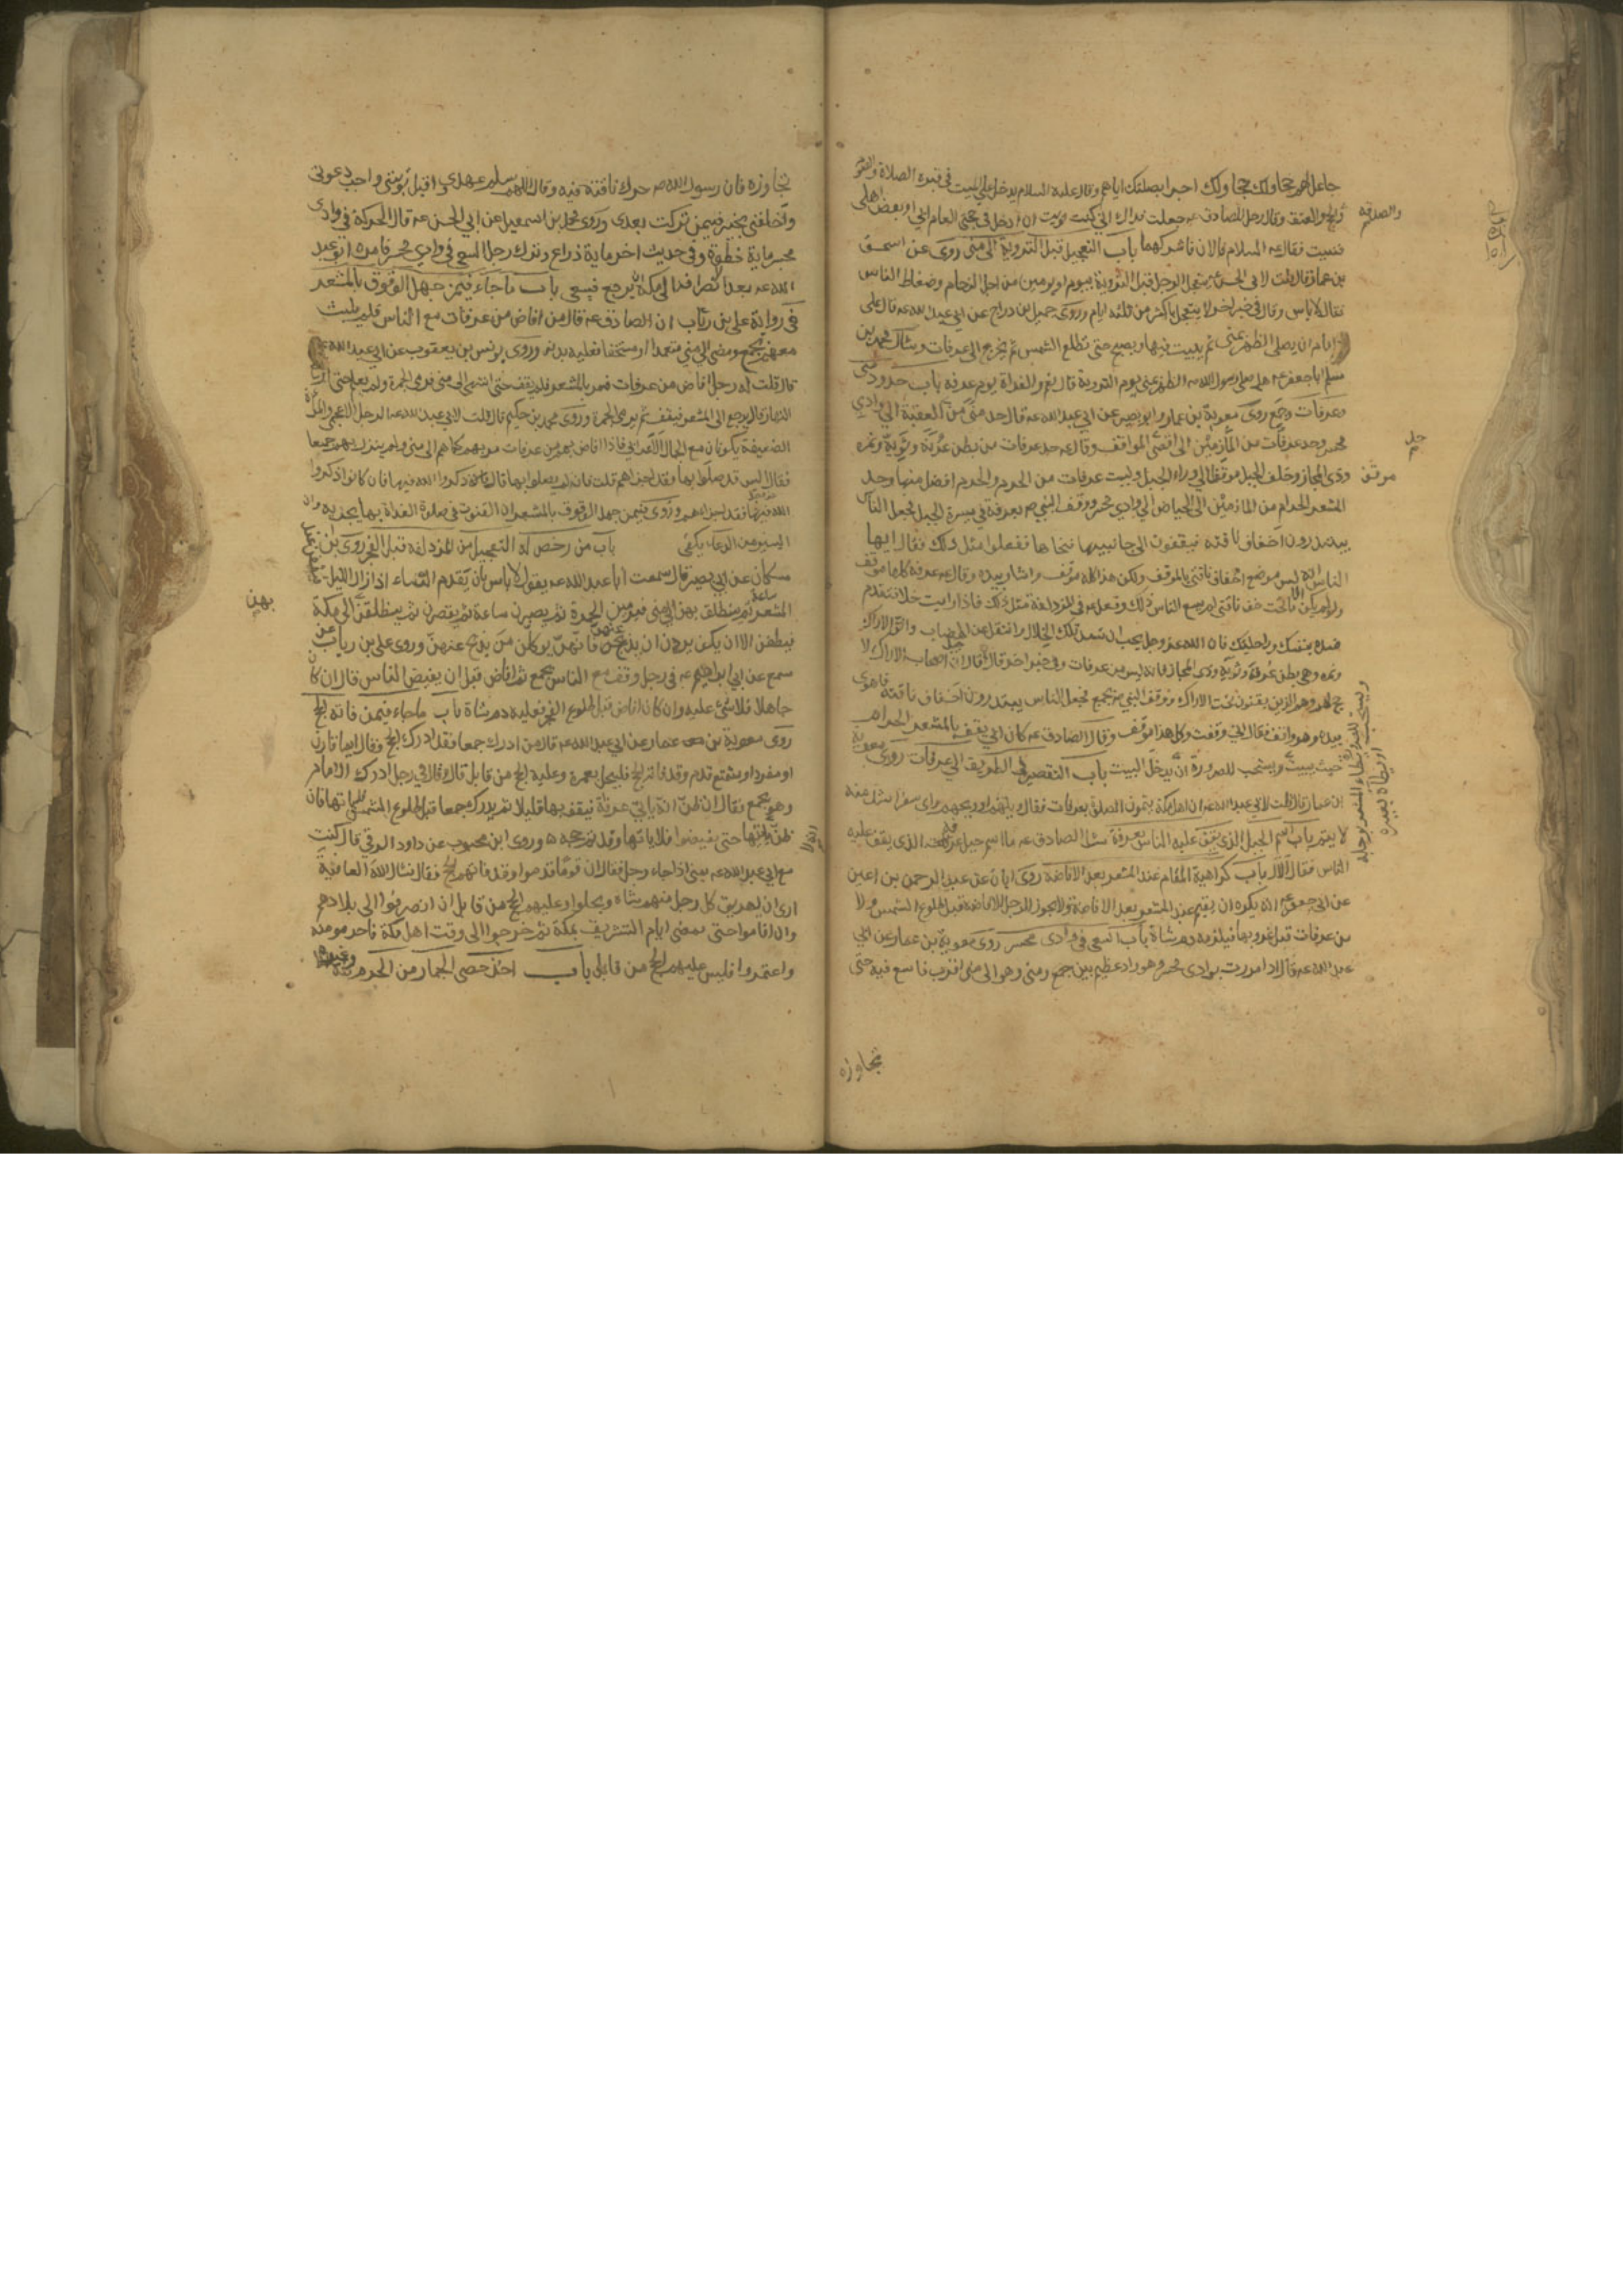 جاعل لهم حجا ولك حجا ولك اجرا بصلتك اياهم وقال عليه السلام يدخل على الميت في قبره الصلاة والصوم
والحج والعتق وقال رجل للصادق عه جعلت فداك اني كنت نويت ان ادخل في حجتي العام ابي او بعض اهلي
والصدقه
فنسيت فقال عه السلام الان فاشركهما باب التعجيل قبل التروية الى منى روى عن اسحق
بن عمار قال قلت لابي الحسن عه يتعجل الرجل قبل التروية بيوم او يومين من اجل الزحام وضغاط الناس
فقال لا باس وقال في خبر اخر لا يتعجل باكثر من ثلثه ايام وروى جميل بن دراج عن ابي عبد الله عه قال على
الامام ان يصلي الظهر بمنى ثم يبيت فيها ويصبح حتى تطلع الشمس ثم يخرج الى عرفات وسال محمد بن
مسلم ابا جعفر عه هل صلى رسول الله ص الظهر بمنى يوم التروية قال نعم والغداة يوم عرفه باب حدود منى
وعرفات وجمع روى معوية بن عمار وابو بصير عن ابي عبد الله عه قال حد منى من العقبة الى وادي
محسر وحد عرفات من المازمين الى اقصى الموقف وقال عه حد عرفات من بطن عرنة وثوية ونمره
وذي المجاز وخلف الجبل موقف الى وراء الجبل وليست عرفات من الحرم والحرم افضل منها وحد
موقف
المشعر الحرام من المازمين الى الحياض الى وادي محسر ووقف النبي ص بعرفة في ميسرة الجبل فجعل الناس
يبتدرون اخفاف ناقته فيقفون الى جانبيها فنحاها ففعلوا مثل ذلك فقال ايها
الناس انه ليس موضع اخفاف ناقتي بالموقف ولكن هذا كله موقف واشار بيده وقال عه عرفة كلها موقف
ولو لم يكن الا ما تحت خف ناقتي لم يسع الناس ذلك وفعل عه في المزدلفة مثل ذلك فاذا رايت خللا فتقدم
فسده بنفسك وراحلتك فان الله عز وجل يحب ان تسد تلك الخلال وانتقل عن الهضاب واتق الاراك
ونمره وهي بطن عرنة وثوية وذي المجاز فانه ليس من عرفات وفي خبر اخر قال قال ان اصحاب الاراك لا
حج لهم وهم الذين يقفون تحت الاراك ووقف النبي ص بجمع فجعل الناس يبتدرون اخفاف ناقته فاهوى
بيده وهو واقف فقال اني وقفت وكل هذا موقف وقال الصادق عه كان ابي يقف بالمشعر الحرام
حيث يبيت ويستحب للصرورة ان يدخل البيت باب التقصير في الطريق الى عرفات روى معوية
بن عمار قال قلت لابي عبد الله عه ان اهل مكة يتمون الصلوة بعرفات فقال ويلهم او ويحهم واي سفر اشد منه
لا يتم باب اسم الجبل الذي يقف عليه الناس بعرفة سئل الصادق عه ما اسم جبل عرفة الذي يقف عليه
الناس فقال الال باب كراهية المقام عند المشعر بعد الافاضة روى ابان عن عبد الرحمن بن اعين
عن ابي جعفر عه انه يكره ان يقيم عند المشعر بعد الافاضة ولا يجوز للرجل الافاضة قبل طلوع الشمس ولا
من عرفات قبل غروبها فيلزمه دم شاة باب السعي في وادي محسر روى معوية بن عمار عن ابي
عبد الله عه قال اذا مررت بوادي محسر وهو واد عظيم بين جمع ومنى وهو الى منى اقرب فاسع فيه حتى
ويستحب للصرورة ان يطأ المشعر برجله
او يطأه ببعيره
تجاوزه
تجاوزه فان رسول الله ص حرك ناقته فيه وقال اللهم سلم عهدي واقبل توبتي واجب دعوتي
واخلفني بخير فيمن تركت بعدي وروى محمد بن اسمعيل عن ابي الحسن عه قال الحركة في وادي
محسر ماية خطوة وفي حديث اخر ماية ذراع وترك رجل السعي في وادي محسر فامره ابو عبد
الله عه بعد انصرافه الى مكة ان يرجع فيسعى باب ما جاء فيمن جهل الوقوف بالمشعر
في رواية علي بن رئاب ان الصادق عه قال من افاض من عرفات مع الناس فلم يلبث
معهم بجمع ومضى الى منى متعمدا او مستخفا فعليه بدنه وروى يونس بن يعقوب عن ابي عبد الله عه
قال قلت له رجل افاض من عرفات فمر بالمشعر فلم يقف حتى انتهى الى منى فرمى الجمرة ولم يعلم حتى ارتفع
النهار قال يرجع الى المشعر فيقف ثم يرمي الجمرة وروى محمد بن حكيم قال قلت لابي عبد الله عه الرجل الاعجمي والمراة
الضعيفة يكونان مع الجمال الاعرابي فاذا افاض بهم من عرفات مر بهم كما هم الى منى ولم ينزل بهم جمعا
فقال اليس قد صلوا بها فقد اجزاهم قلت فان لم يصلوا بها قال ذكروا الله فيها فان كانوا ذكروا
الله فيها فقد اجزاهم وروى فيمن جهل الوقوف بالمشعر ان القنوت في صلوة الغداة بها يجزيه وان
اليسير من الدعاء يكفي باب من رخص له التعجيل من المزدلفة قبل الفجر روى ابن
مسكان عن ابي بصير قال سمعت ابا عبد الله عه يقول لا باس بان يقدم النساء اذا زال الليل
بهن
المشعر ساعة ثم ينطلق بهن الى منى فيرمين الجمرة ثم يصبرن ساعة ثم يقصرن ثم ينطلقن الى مكة
فيطفن الا ان يكن يردن ان يذبح عنهن فانهن يوكلن من يذبح عنهن وروى علي بن رياب عن
سمع عن ابي ابراهيم عه في رجل وقف مع الناس بجمع ثم افاض قبل ان يفيض الناس قال ان كان
جاهلا فلا شئ عليه وان كان افاض قبل طلوع الفجر فعليه دم شاة باب ما جاء فيمن فاته الحج
روى معوية بن عمار عن ابي عبد الله عه قال من ادرك جمعا فقد ادرك الحج وقال ايما قارن
او مفرد او متمتع قدم وقد فاته الحج فليحل بعمرة وعليه الحج من قابل قال وقال في رجل ادرك الامام
وهو بجمع فقال ان ظن انه ياتي عرفات فيقف بها قليلا ثم يدرك جمعا قبل طلوع الشمس فلياتها فان
ظن انه لا ياتها حتى يفيضوا فلا ياتها وقد تم حجه وروى ابن محبوب عن داود الرقي قال كنت
مع ابي عبد الله عه بمنى اذا جاء رجل فقال ان قوما قدموا وقد فاتهم الحج فقال نسال الله العافية
ارى ان يهريق كل رجل منهم شاه ويحلوا وعليهم الحج من قابل ان انصرفوا الى بلادهم
وان اقاموا حتى تمضي ايام التشريق بمكة ثم خرجوا الى وقت اهل مكة فاحرموا منه
واعتمروا فليس عليهم الحج من قابل باب اخذ حصى الجمار من الحرم وغيره